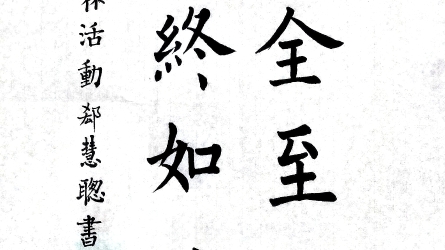 全至
終如
活動郄慧聰書